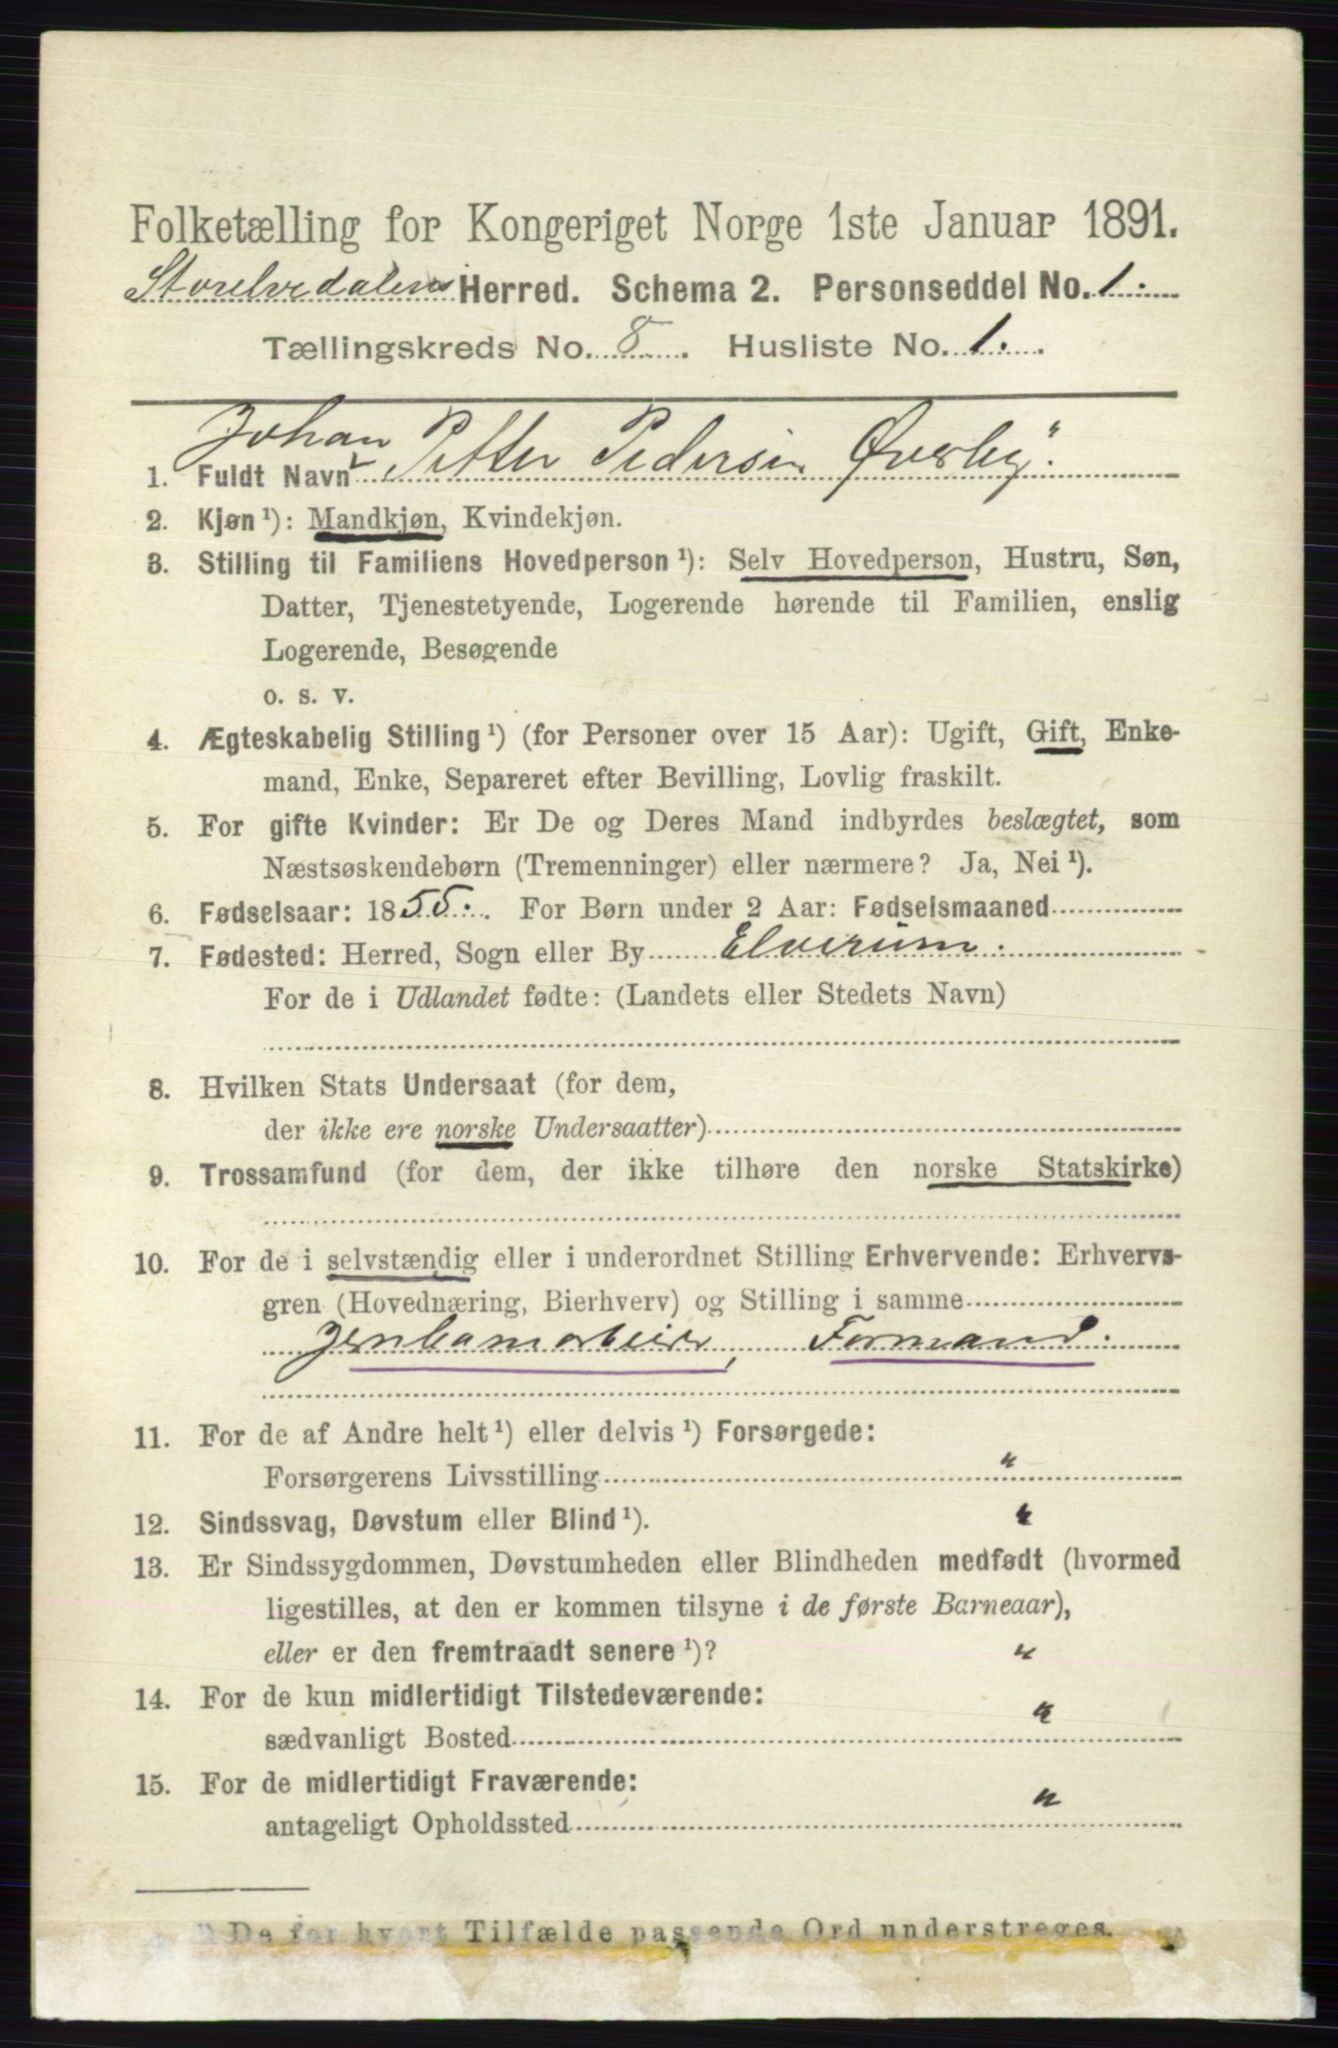 Folketælling for Kongeriget Norge 1ste Januar 1891.
Storelvedalens Herred. Schema 2. Personseddel No. 1.
Tællingskreds No. 8. Husliste No. 1.
Johan
1. Fuldt Navn Petter Pedersen Øverby.
2. Kjøn ¹): Mandkjøn, Kvindekjøn.
3. Stilling til Familiens Hovedperson ¹): Selv Hovedperson, Hustru, Søn,
Datter, Tjenestetyende, Logerende hørende til Familien, enslig
Logerende, Besøgende
o. s. v.
4. Ægteskabelig Stilling ¹) (for Personer over 15 Aar): Ugift, Gift, Enke-
mand, Enke, Separeret efter Bevilling, Lovlig fraskilt.
5. For gifte Kvinder: Er De og Deres Mand indbyrdes beslægtet, som
Næstsøskendebørn (Tremenninger) eller nærmere? Ja, Nei ¹).
6. Fødselsaar: 1855. For Børn under 2 Aar: Fødselsmaaned
7. Fødested: Herred, Sogn eller By Elverum.
For de i Udlandet fødte: (Landets eller Stedets Navn)
8. Hvilken Stats Undersaat (for dem,
der ikke ere norske Undersaatter)
9. Trossamfund (for dem, der ikke tilhøre den norske Statskirke)
10. For de i selvstændig eller i underordnet Stilling Erhvervende: Erhvervs-
gren (Hovednæring, Bierhverv) og Stilling i samme
Jernbanearbeider, Formand.
11. For de af Andre helt ¹) eller delvis ¹) Forsørgede:
Forsørgerens Livsstilling "
12. Sindssvag, Døvstum eller Blind ¹). "
13. Er Sindssygdommen, Døvstumheden eller Blindheden medfødt (hvormed
ligestilles, at den er kommen tilsyne i de første Barneaar),
eller er den fremtraadt senere ¹)? "
14. For de kun midlertidigt Tilstedeværende:
sædvanligt Bosted "
15. For de midlertidigt Fraværende:
antageligt Opholdssted "
¹) De for hvert Tilfælde passende Ord understreges.